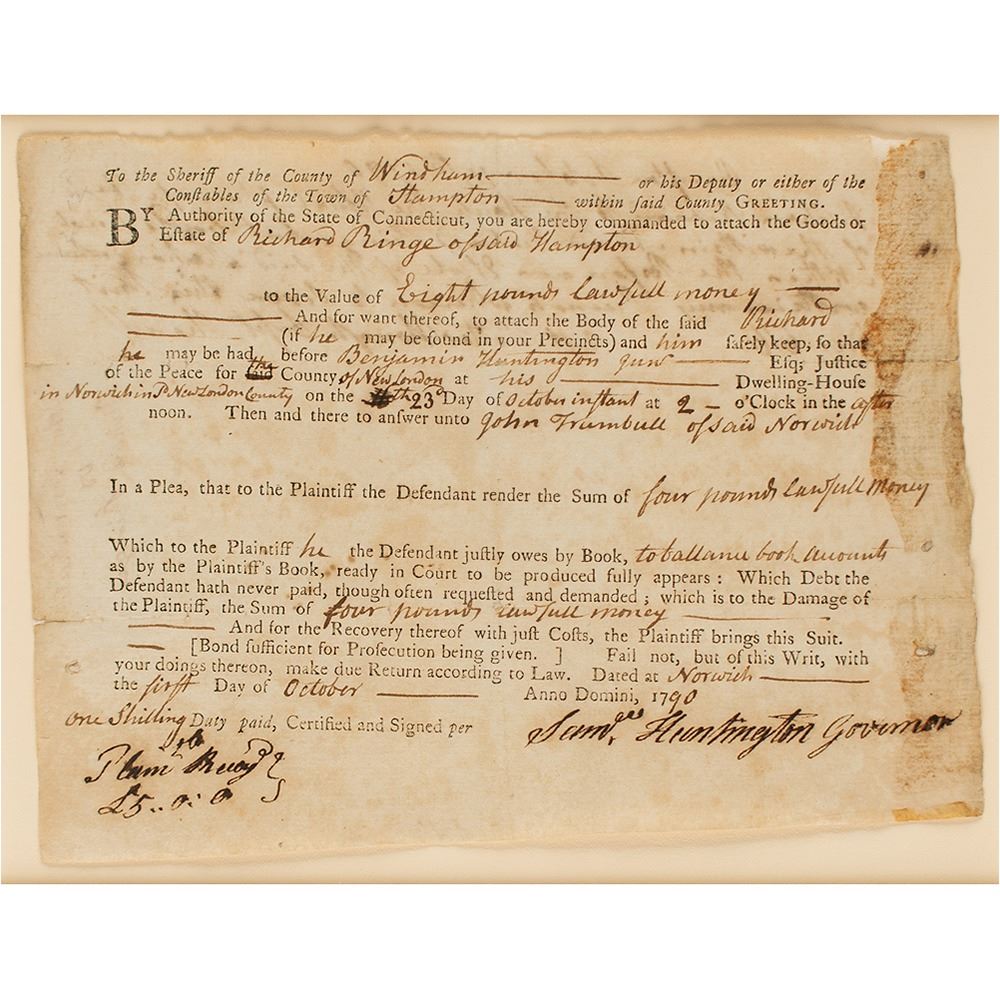 To the Sheriff of the County of Windham or his Deputy or either of the
Conſtables of the Town of Hampton within ſaid County GREETING.
BY Authority of the State of Connecticut, you are hereby commanded to attach the Goods or
Eſtate of Richard Ringe of said Hampton
to the Value of Eight pounds Lawfull money
And for want thereof, to attach the Body of the ſaid Richard
(if he may be found in your Precincts) and him ſafely keep, ſo that
he may be had before Benjamin Huntington Junr Eſq; Juſtice
of the Peace for ſaid the County of New London at his Dwelling-House
in Norwich in sd New London County on the 23d Day of October inſtant at 2 o'Clock in the after
noon. Then and there to answer unto John Trumbull of said Norwich
In a Plea, that to the Plaintiff the Defendant render the Sum of four pounds Lawfull Money
Which to the Plaintiff he the Defendant juſtly owes by Book, to ballance book accounts
as by the Plaintiff's Book, ready in Court to be produced fully appears: Which Debt the
Defendant hath never paid, though often requeſted and demanded; which is to the Damage of
the Plaintiff, the Sum of four pounds Lawfull money
And for the Recovery thereof with juſt Costs, the Plaintiff brings this Suit.
[Bond ſufficient for Proſecution being given. ] Fail not, but of this Writ, with
your doings thereon, make due Return according to Law. Dated at Norwich
the firſt Day of October Anno Domini, 1790
One Shilling Duty paid, Certified and Signed per Saml Huntington Governor
£5..0..0